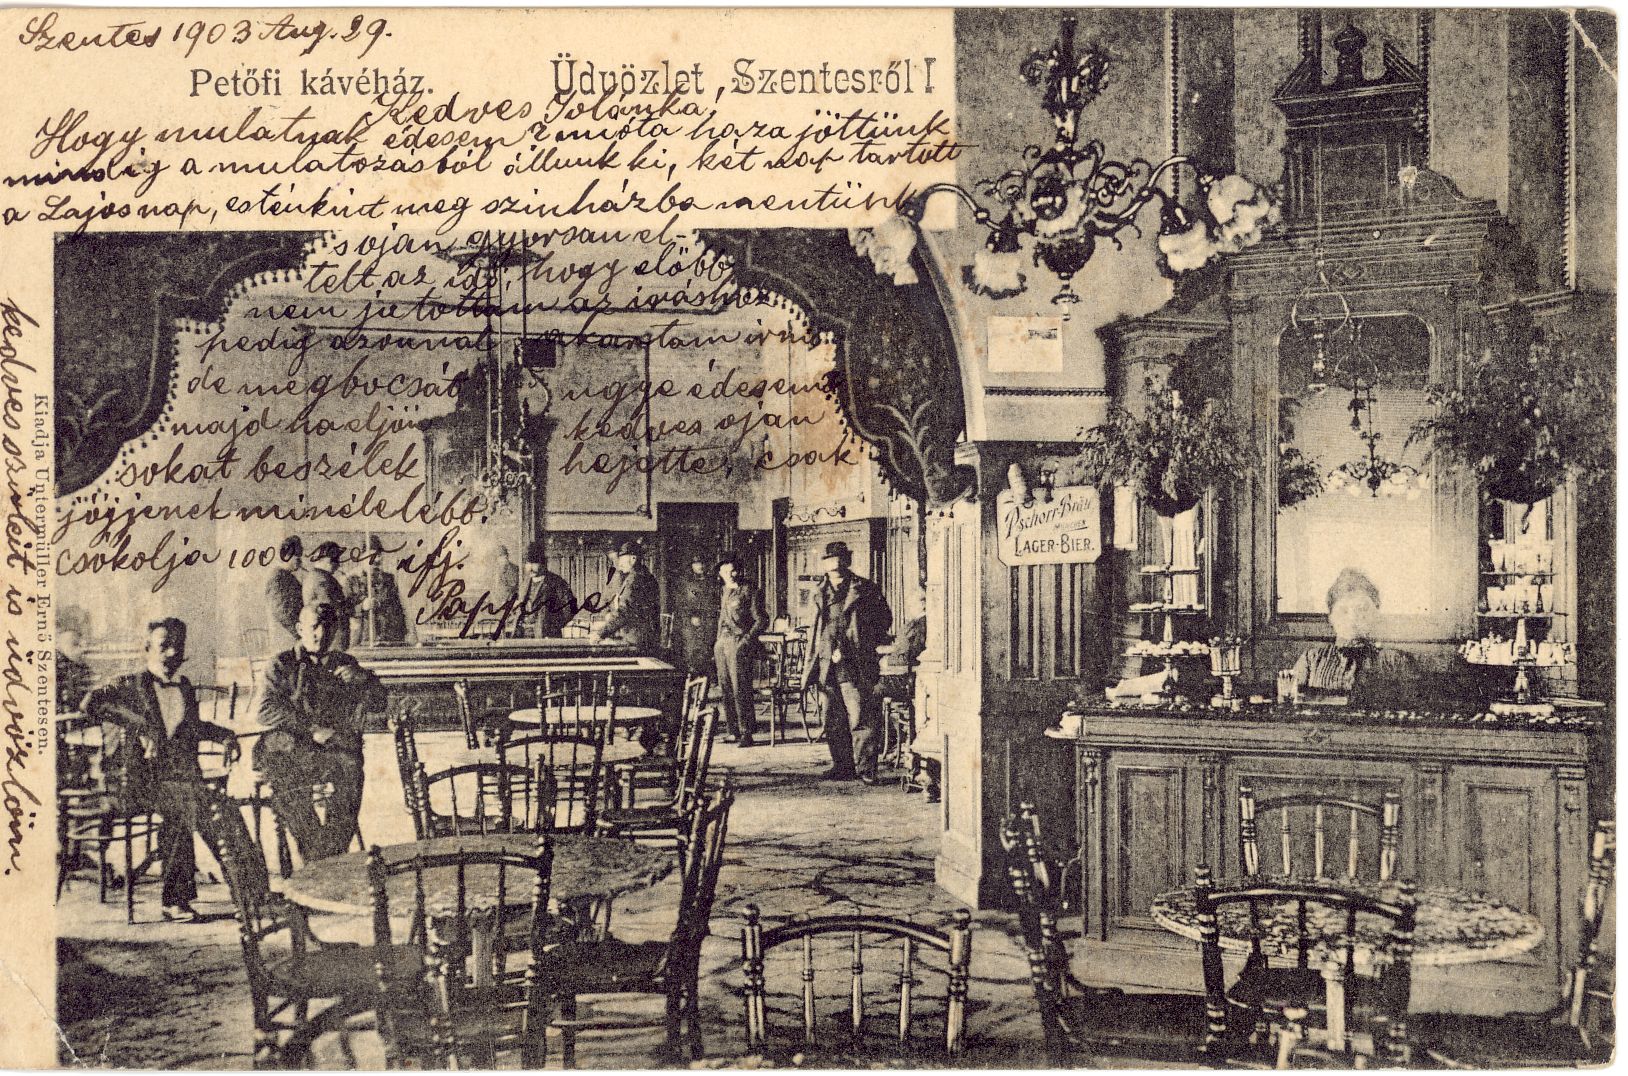 Szentes 1903 Aug. 29.
Petőfi kávéház.
Üdvözlet Szentesről!
Kedves Jolánka,
Hogy mulatnak édesem? mióta haza jöttünk
mindig a mulatozásból állunk ki, két nap tartott
a Lajos nap, esténkint meg szinházba mentünk
sojan gyorsan el-
telt az idő, hogy előbb
nem jutottam az iráshoz
pedig azonnal akartam irni
de megbocsát ugye édesem
majd ha eljön kedves ojan
sokat beszélek hejette, csak
jöjjenek minélelébb.
csókolja 1000 szer ifj.
Pappné
kedves szüleit is üdvözlöm.
Kiadja Untermüller Ernő Szentesen.
Pschorr-Bräu
MÜNCHEN
LAGER-BIER.